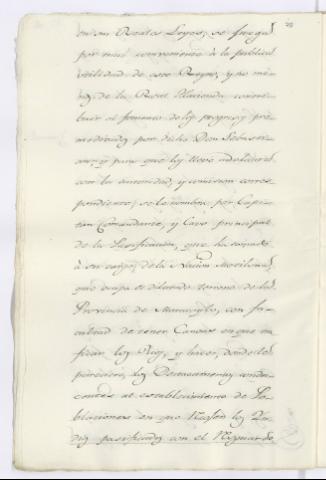 en sus Reales Leyes, se juzga
por mui conveniente à la publica
utilidad de este Reyno, y no me-
nos de la Real Hacienda contri-
buir al fomento de los progresos pre-
meditados por dicho Don Sebasti-
an; y para que los lleve adelante
con la autoridad, y comision corres-
pondiente, se le nombra por Capi-
tan Comandante, y Cavo principal
de la Pacificacion, que ha tomado
à su cargo, de la Nacion Motilona,
que ocupa el dilatado terreno de la
Provincia de Maracaybo, con fa-
cultad de tener Canoas en que na-
vegar los Rios, y hacer, donde le
pareciere, los Destacamentos condu-
centes al establecimiento de Po-
blaciones en que Vivan los In-
dios pacificados con el Resguardo